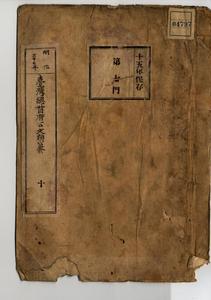 04797
十五年保存
第七門
明治
臺灣總督府公文類纂
十